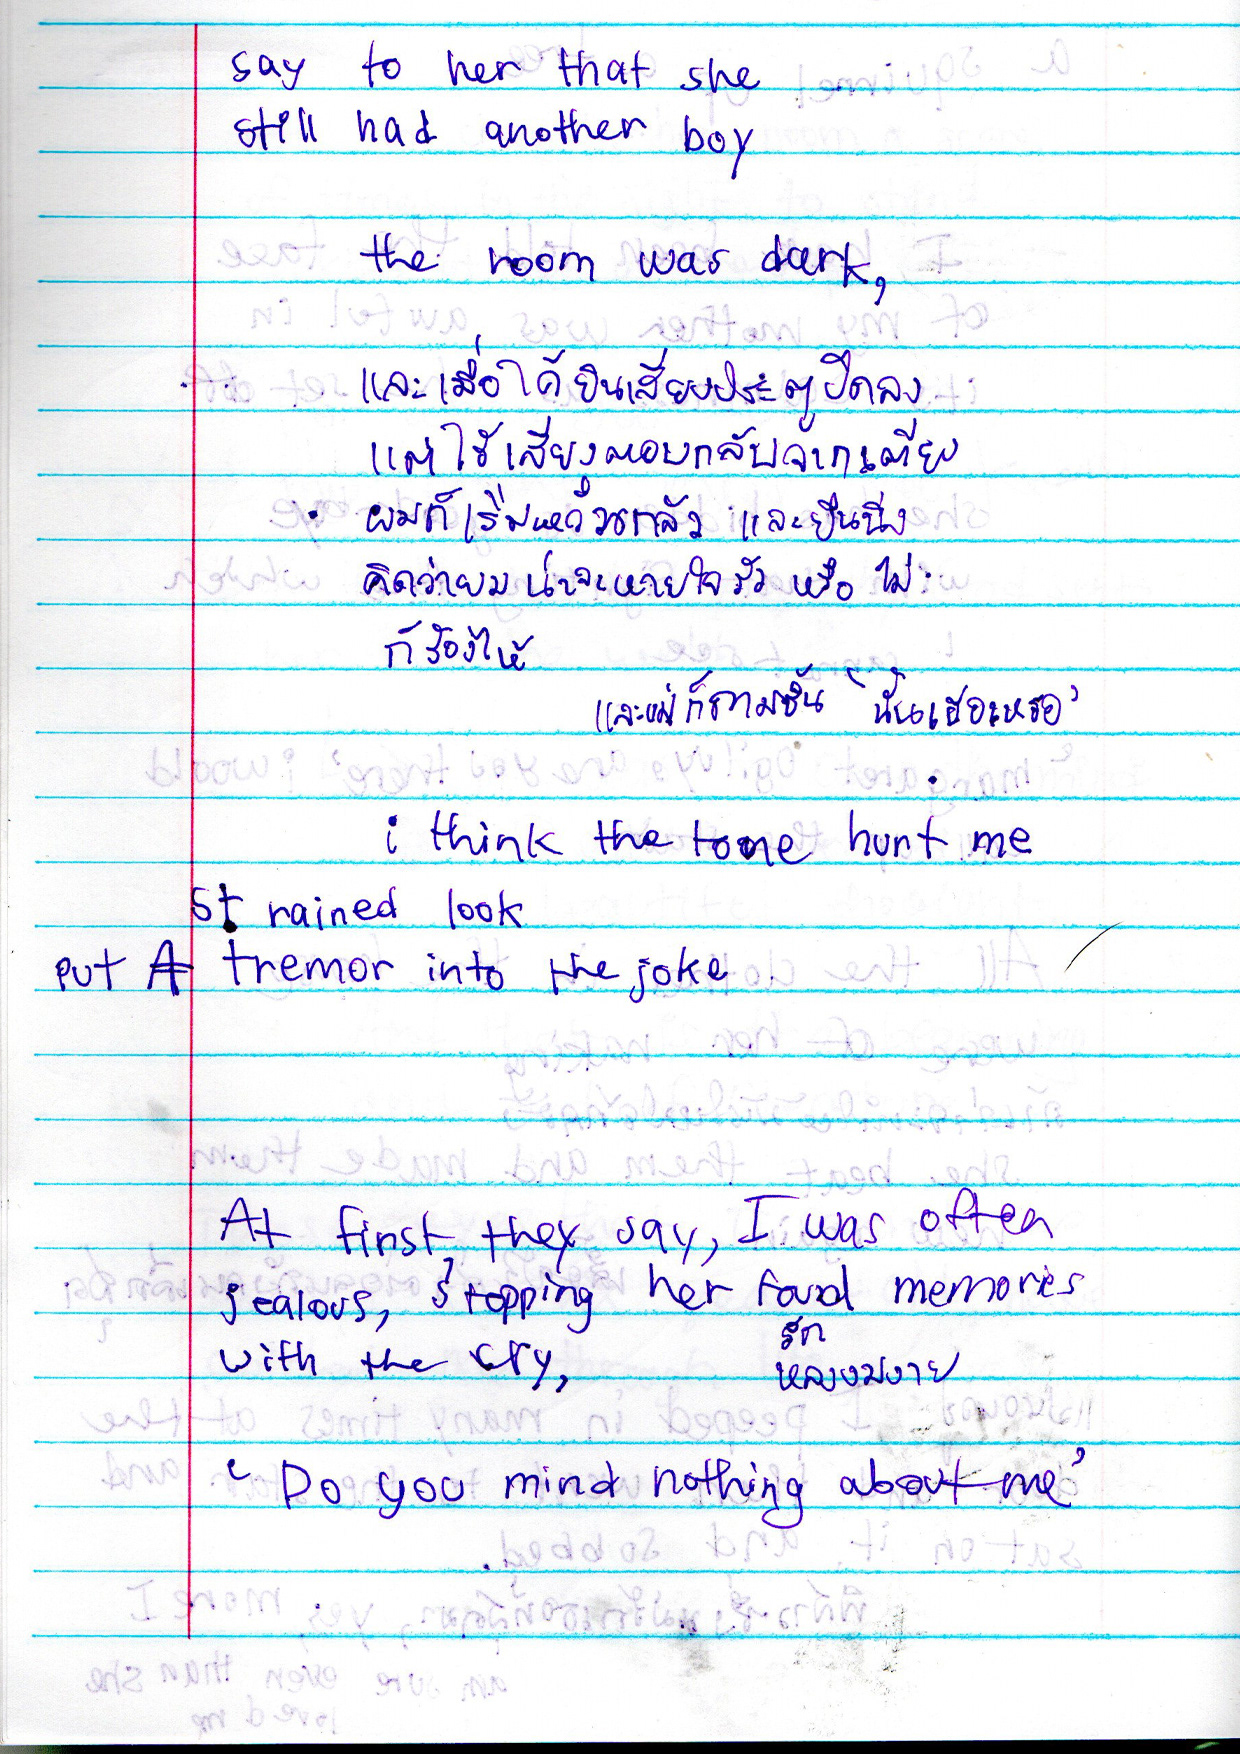 say to her that she
still had another boy
the room was dark,
และเมื่อได้ยินเสียงประตูปิดลง
แต่ไร้เสียงตอบกลับจากเตียง
ผมก็เริ่มหวาดกลัว และยืนนิ่ง
คิดว่าผมน่าจะหายใจรัว หรือ ไม่
ก็ร้องไห้
และแม่ก็ถามขึ้น 'นั่นเธอเหรอ'
i think the tone hurt me
strained look
put A tremor into the joke
At first, they say, I was often
jealous, stopping her fond memories
with the cry,
รัก
หลงงมงาย
'Do you mind nothing about me'